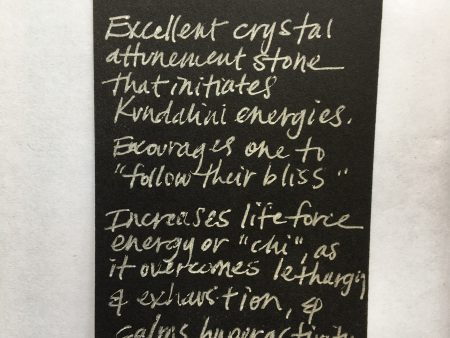 Excellent crystal
attunement stone
that initiates
Kundalini energies.
Ecourages one to
"follow their bliss"
Increases life force
energy or "chi", as
it overcomes lethargy
& exhaustion, &
calms hyperactivity